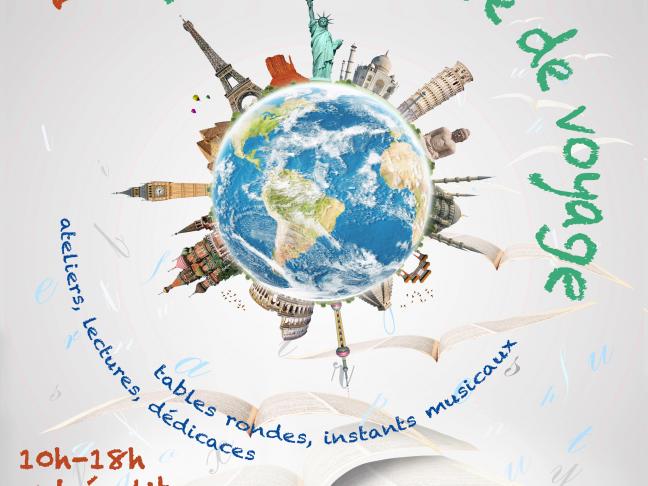 de voyage
ateliers, lectures, dédicaces
tables rondes, instants musicaux
10h-18h